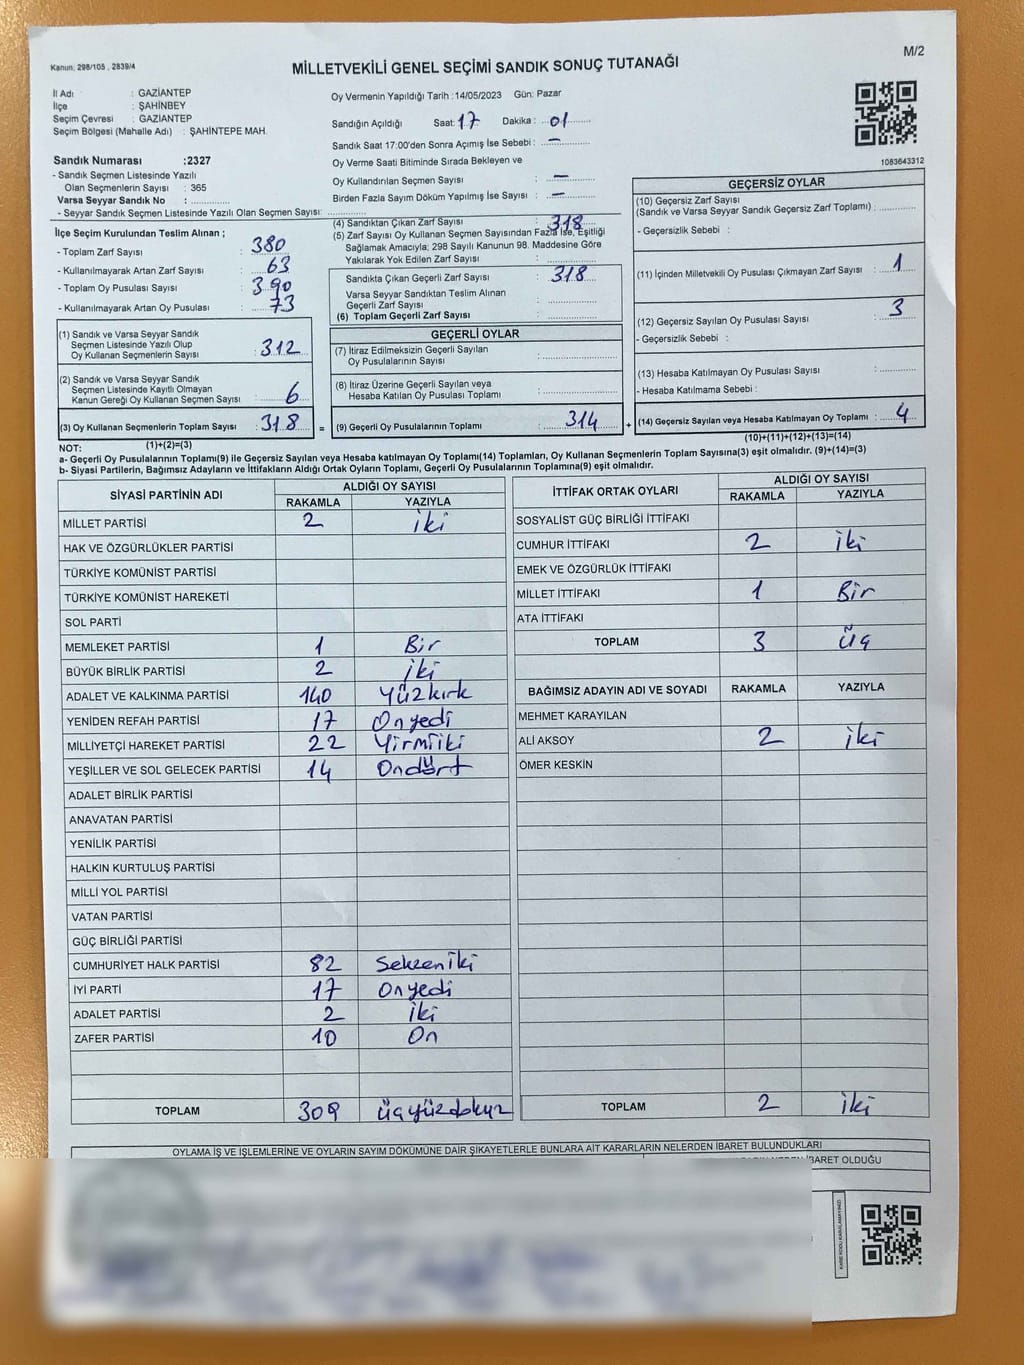 Kanun; 298/105 , 2839/4
MİLLETVEKİLİ GENEL SEÇİMİ SANDIK SONUÇ TUTANAĞI
M/2
İl Adı : GAZİANTEP
İlçe : ŞAHİNBEY
Seçim Çevresi : GAZİANTEP
Seçim Bölgesi (Mahalle Adı) : ŞAHİNTEPE MAH.
Sandık Numarası :2327
- Sandık Seçmen Listesinde Yazılı
Olan Seçmenlerin Sayısı : 365
Varsa Seyyar Sandık No :
- Seyyar Sandık Seçmen Listesinde Yazılı Olan Seçmen Sayısı:
Oy Vermenin Yapıldığı Tarih :14/05/2023 Gün: Pazar
Sandığın Açıldığı Saat: 17 Dakika : 01
Sandık Saat 17:00'den Sonra Açımış İse Sebebi : -
Oy Verme Saati Bitiminde Sırada Bekleyen ve
Oy Kullandırılan Seçmen Sayısı : -
Birden Fazla Sayım Döküm Yapılmış İse Sayısı : -
1083643312
İlçe Seçim Kurulundan Teslim Alınan ;
- Toplam Zarf Sayısı : 380
- Kullanılmayarak Artan Zarf Sayısı : 63
- Toplam Oy Pusulası Sayısı : 390
- Kullanılmayarak Artan Oy Pusulası : 73
(1) Sandık ve Varsa Seyyar Sandık
Seçmen Listesinde Yazılı Olup
Oy Kullanan Seçmenlerin Sayısı : 312
(2) Sandık ve Varsa Seyyar Sandık
Seçmen Listesinde Kayıtlı Olmayan
Kanun Gereği Oy Kullanan Seçmen Sayısı : 6
(3) Oy Kullanan Seçmenlerin Toplam Sayısı : 318 =
(1)+(2)=(3)
(4) Sandıktan Çıkan Zarf Sayısı : 318
(5) Zarf Sayısı Oy Kullanan Seçmen Sayısından Fazla İse, Eşitliği
Sağlamak Amacıyla; 298 Sayılı Kanunun 98. Maddesine Göre
Yakılarak Yok Edilen Zarf Sayısı :
Sandıkta Çıkan Geçerli Zarf Sayısı : 318
Varsa Seyyar Sandıktan Teslim Alınan
Geçerli Zarf Sayısı :
(6) Toplam Geçerli Zarf Sayısı :
GEÇERLİ OYLAR
(7) İtiraz Edilmeksizin Geçerli Sayılan
Oy Pusulalarının Sayısı :
(8) İtiraz Üzerine Geçerli Sayılan veya
Hesaba Katılan Oy Pusulası Toplamı :
(9) Geçerli Oy Pusulalarının Toplamı : 314 +
GEÇERSİZ OYLAR
(10) Geçersiz Zarf Sayısı
(Sandık ve Varsa Seyyar Sandık Geçersiz Zarf Toplamı) :
- Geçersizlik Sebebi :
(11) İçinden Milletvekili Oy Pusulası Çıkmayan Zarf Sayısı : 1
(12) Geçersiz Sayılan Oy Pusulası Sayısı : 3
- Geçersizlik Sebebi :
(13) Hesaba Katılmayan Oy Pusulası Sayısı :
- Hesaba Katılmama Sebebi :
(14) Geçersiz Sayılan veya Hesaba Katılmayan Oy Toplamı : 4
(10)+(11)+(12)+(13)=(14)
NOT:
a- Geçerli Oy Pusulalarının Toplamı(9) ile Geçersiz Sayılan veya Hesaba katılmayan Oy Toplamı(14) Toplamları, Oy Kullanan Seçmenlerin Toplam Sayısına(3) eşit olmalıdır. (9)+(14)=(3)
b- Siyasi Partilerin, Bağımsız Adayların ve İttifakların Aldığı Ortak Oyların Toplamı, Geçerli Oy Pusulalarının Toplamına(9) eşit olmalıdır.
SİYASİ PARTİNİN ADI ALDIĞI OY SAYISI
RAKAMLA YAZIYLA
MİLLET PARTİSİ 2 iki
HAK VE ÖZGÜRLÜKLER PARTİSİ
TÜRKİYE KOMÜNİST PARTİSİ
TÜRKİYE KOMÜNİST HAREKETİ
SOL PARTİ
MEMLEKET PARTİSİ 1 Bir
BÜYÜK BİRLİK PARTİSİ 2 iki
ADALET VE KALKINMA PARTİSİ 140 Yüzkırk
YENİDEN REFAH PARTİSİ 17 Onyedi
MİLLİYETÇİ HAREKET PARTİSİ 22 Yirmiiki
YEŞİLLER VE SOL GELECEK PARTİSİ 14 Ondört
ADALET BİRLİK PARTİSİ
ANAVATAN PARTİSİ
YENİLİK PARTİSİ
HALKIN KURTULUŞ PARTİSİ
MİLLİ YOL PARTİSİ
VATAN PARTİSİ
GÜÇ BİRLİĞİ PARTİSİ
CUMHURİYET HALK PARTİSİ 82 Sekseniki
İYİ PARTİ 17 Onyedi
ADALET PARTİSİ 2 iki
ZAFER PARTİSİ 10 On
TOPLAM 309 üçyüzdokuz
İTTİFAK ORTAK OYLARI ALDIĞI OY SAYISI
RAKAMLA YAZIYLA
SOSYALİST GÜÇ BİRLİĞİ İTTİFAKI
CUMHUR İTTİFAKI 2 iki
EMEK VE ÖZGÜRLÜK İTTİFAKI
MİLLET İTTİFAKI 1 Bir
ATA İTTİFAKI
TOPLAM 3 Üç
BAĞIMSIZ ADAYIN ADI VE SOYADI RAKAMLA YAZIYLA
MEHMET KARAYILAN
ALİ AKSOY 2 iki
ÖMER KESKİN
TOPLAM 2 iki
OYLAMA İŞ VE İŞLEMLERİNE VE OYLARIN SAYIM DÖKÜMÜNE DAİR ŞİKAYETLERLE BUNLARA AİT KARARLARIN NELERDEN İBARET BULUNDUKLARI
İBARET OLDUĞU